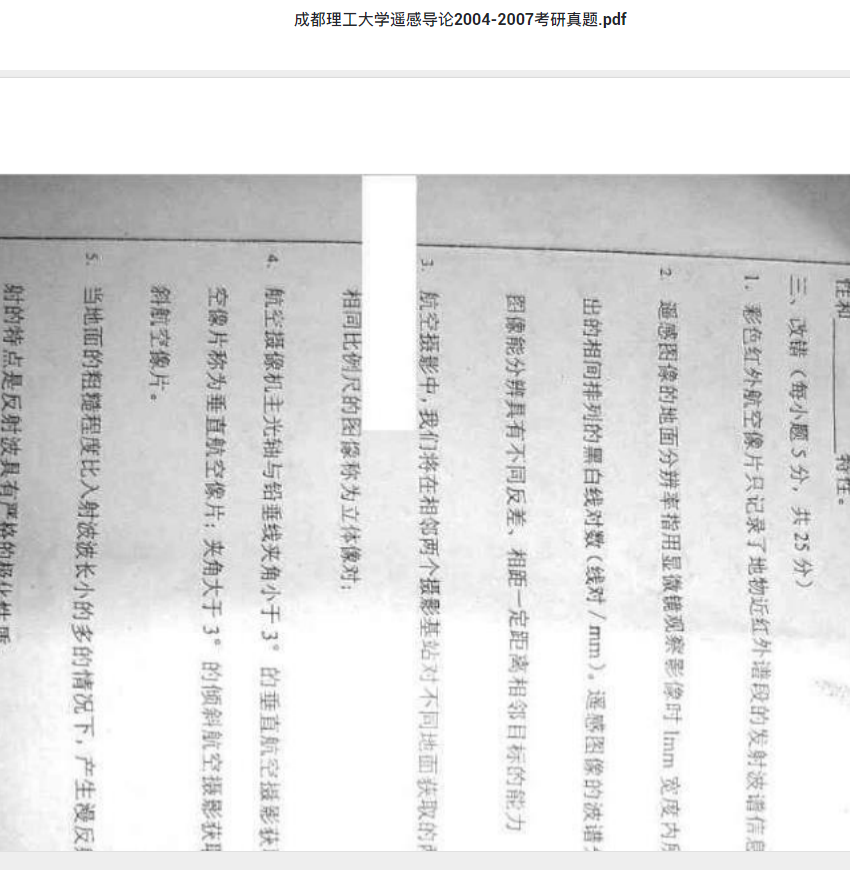 成都理工大学遥感导论2004-2007考研真题.pdf
性和________特性。
三、改错（每小题5分，共25分）
1. 彩色红外航空像片只记录了地物近红外谱段的发射波谱信息
2. 遥感图像的地面分辨率指用显微镜观察影像时1mm宽度内所
出的相间排列的黑白线对数（线对/mm）。遥感图像的波谱
图像能分辨具有不同反差、相距一定距离相邻目标的能力
3. 航空摄影中，我们将在相邻两个摄影基站对不同地面获取的
相同比例尺的图像称为立体像对；
4. 航空摄像机主光轴与铅垂线夹角小于3°的垂直航空摄影获
空像片称为垂直航空像片；夹角大于3°的倾斜航空摄影获
斜航空像片。
5. 当地面的粗糙程度比入射波波长小的多的情况下，产生漫反
射的特点是反射波具有严格的极化性质